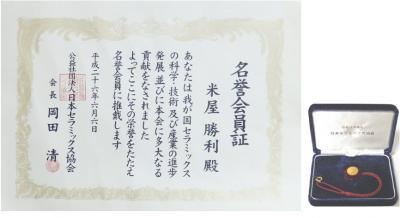 名誉会員証
米屋 勝利 殿
あなたは我が国セラミックス
の科学・技術及び産業の進歩
発展並びに本会に多大なる
貢献をなされました
よってここにその栄誉をたたえ
名誉会員に推戴します
平成二十六年六月六日
公益社団法人日本セラミックス協会
会長 岡田 清